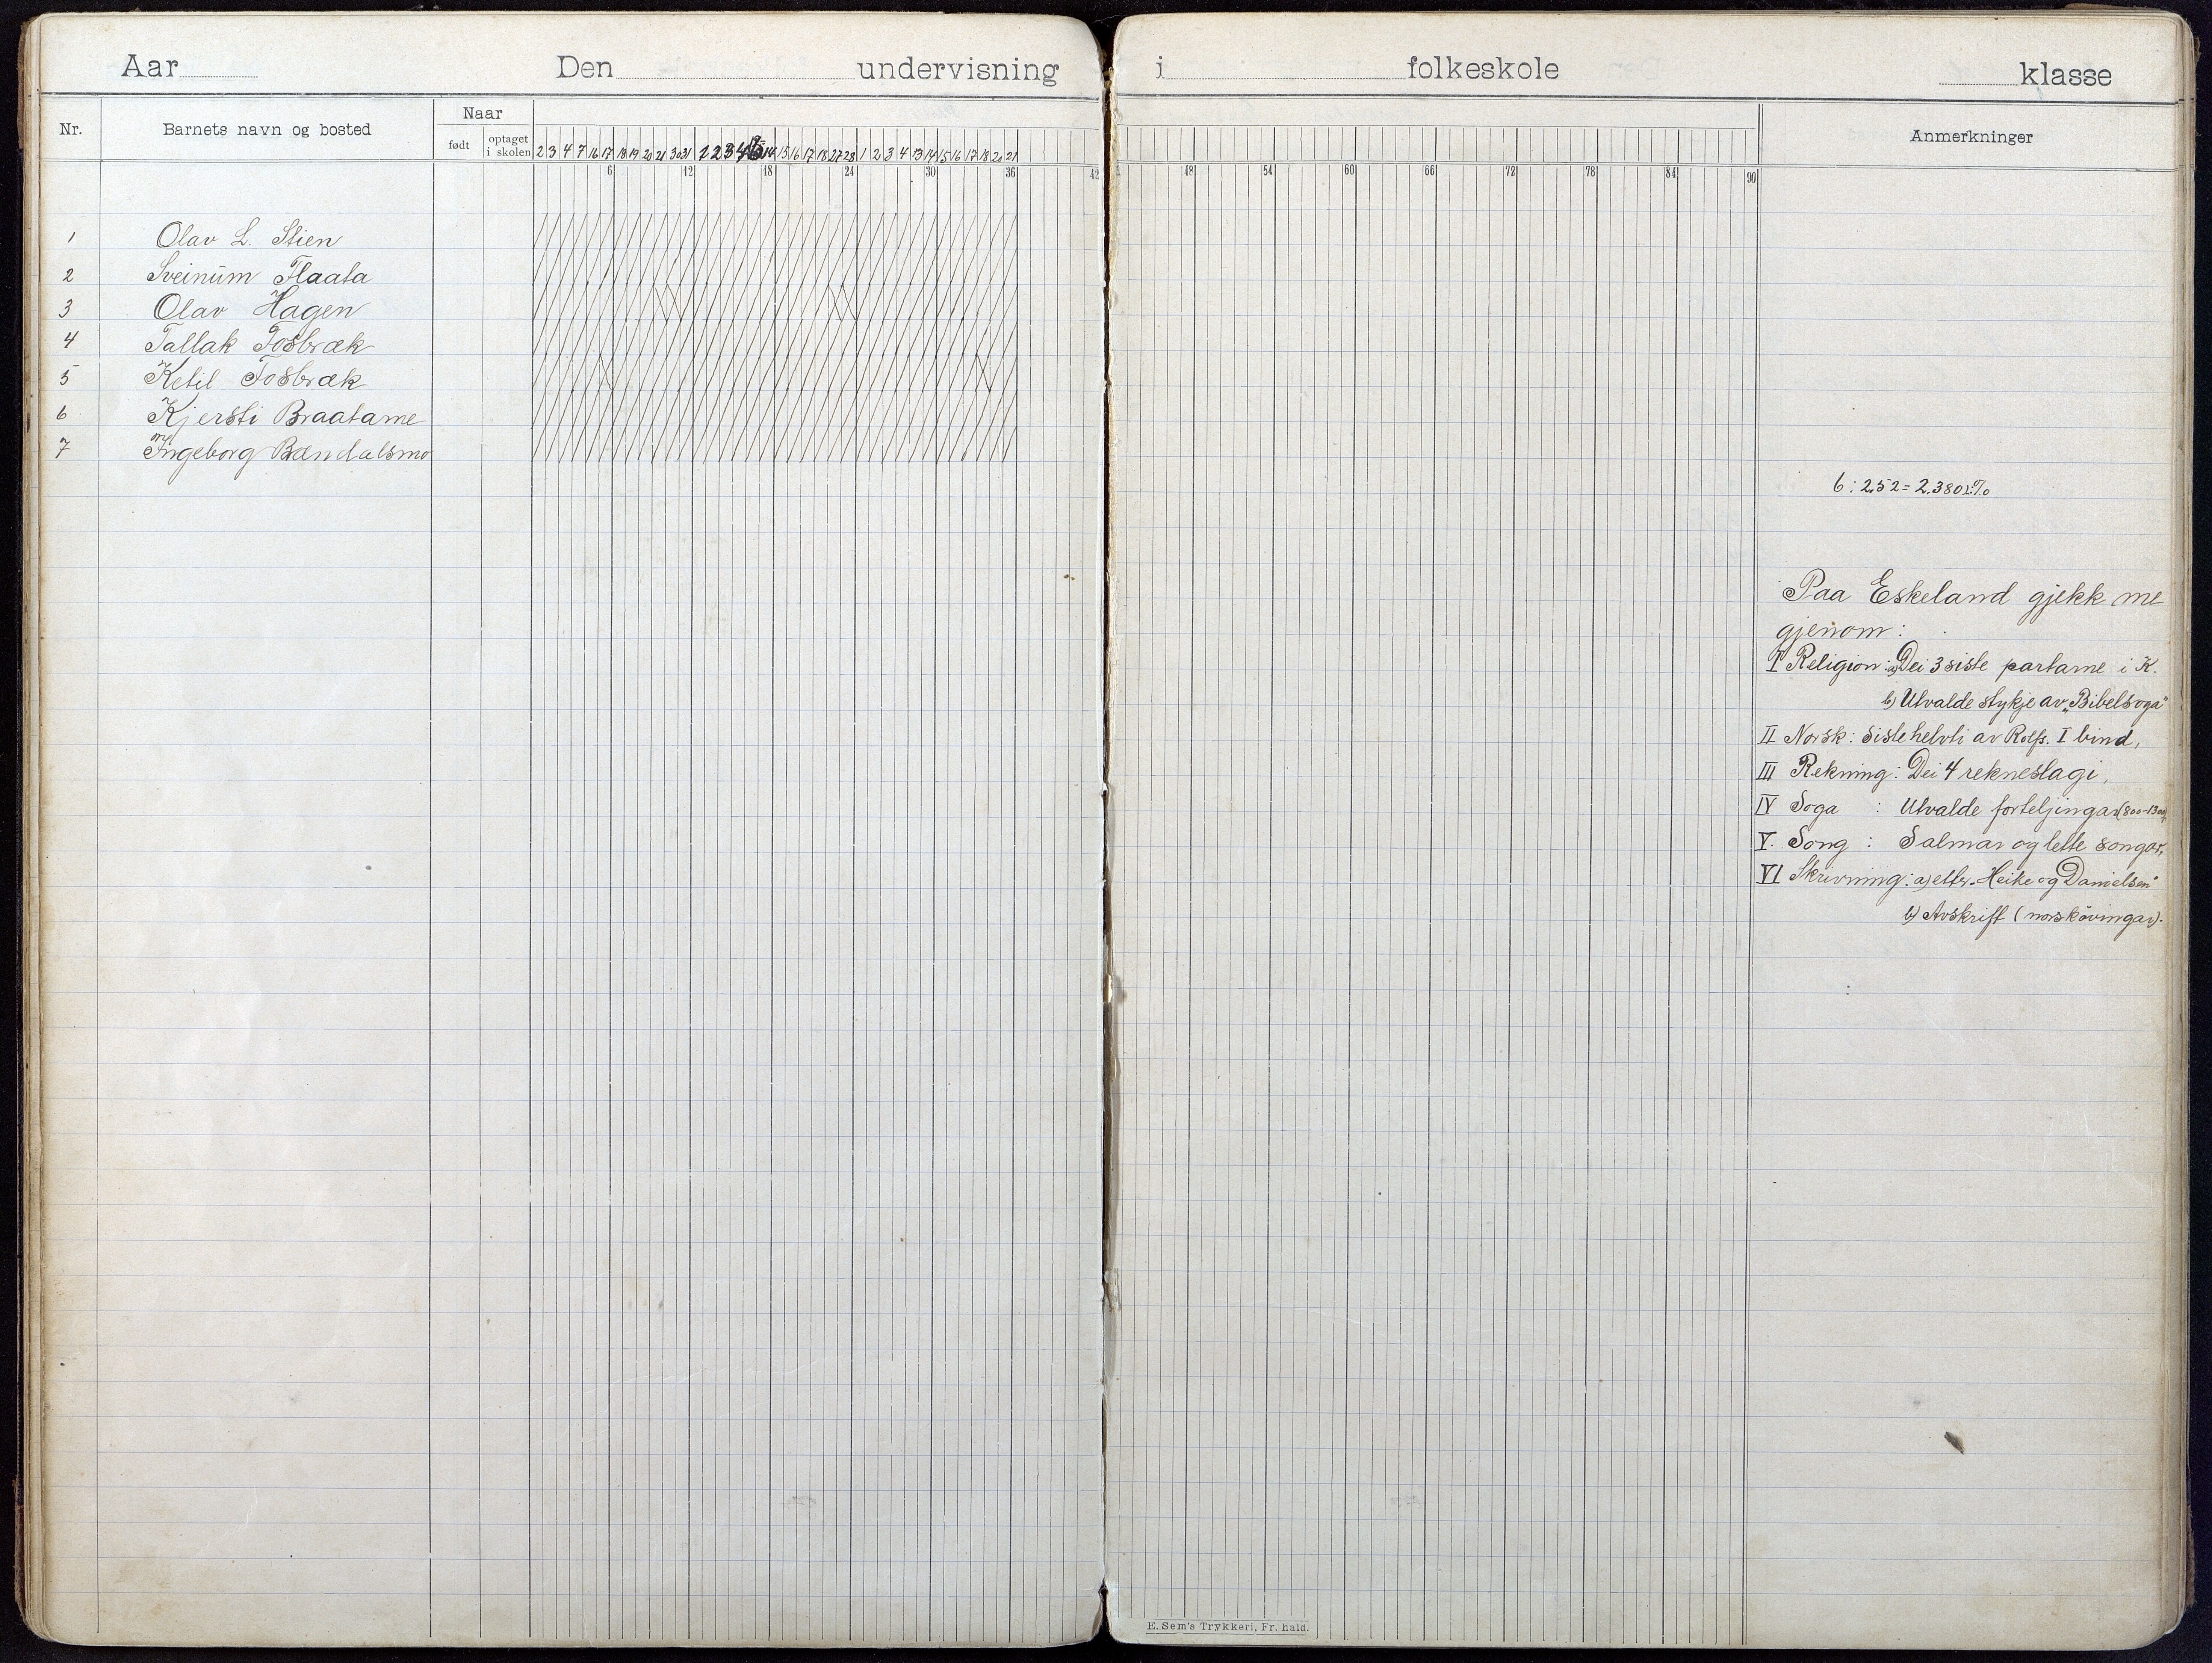 Aar Den undervisning i folkeskole klasse
Nr. Barnets navn og bosted Naar født optaget i skolen Anmerkninger
2 3 4 7 16 17 18 19 20 21 30 31 1 2 3 4 14 15 16 17 18 27 28 1 2 3 4 13 14 15 16 17 18 20 21
6 12 18 24 30 36 42 48 54 60 66 72 78 84 90
1 Olav L. Stien
2 Sveinüm Flaata
3 Olav Hagen
4 Tallak Fosbræk
5 Ketil Fosbræk
6 Kjersti Braatarne
7 Ingeborg Bændalsmo
6 : 252 = 2.3801%
Paa Eskeland gjekk me
gjenom:
I Religion: a) Dei 3 siste partarne i K.
b) Utvalde stykje av „Bibelsoga"
II Norsk: Siste helvti av Rolfs. I bind,
III Rekning: Dei 4 rekneslagi,
IV Soga : Utvalde forteljingar (800-1300),
V. Song : Salmar og lette songar,
VI Skrivning: a) etter „Heike og Danielsen"
b) Avskrift (norskövingar).
E. Sem's Trykkeri, Fr. hald.